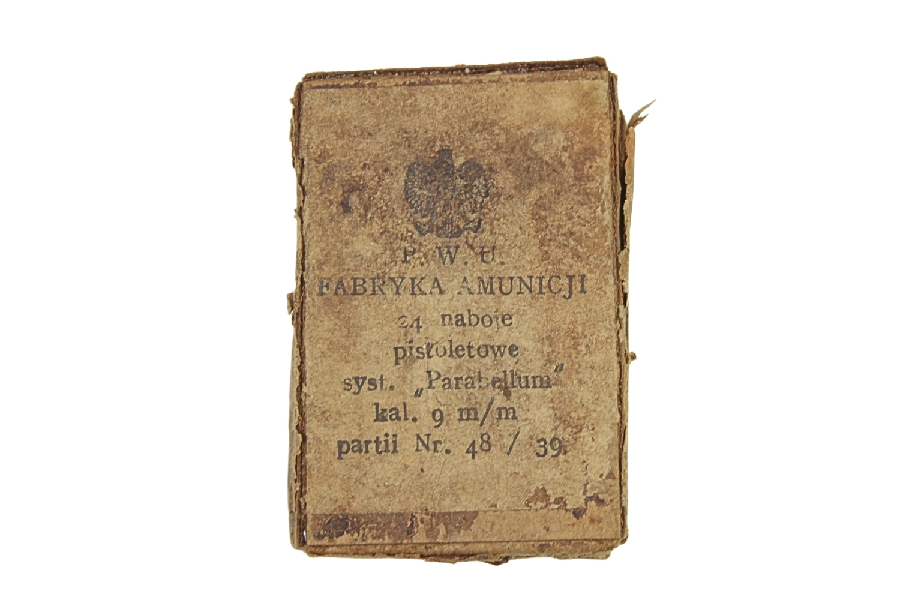 P. W. U.
FABRYKA AMUNICJI
24 naboje
pistoletowe
syst. „Parabellum"
kal. 9 m/m
partii Nr. 48 / 39.